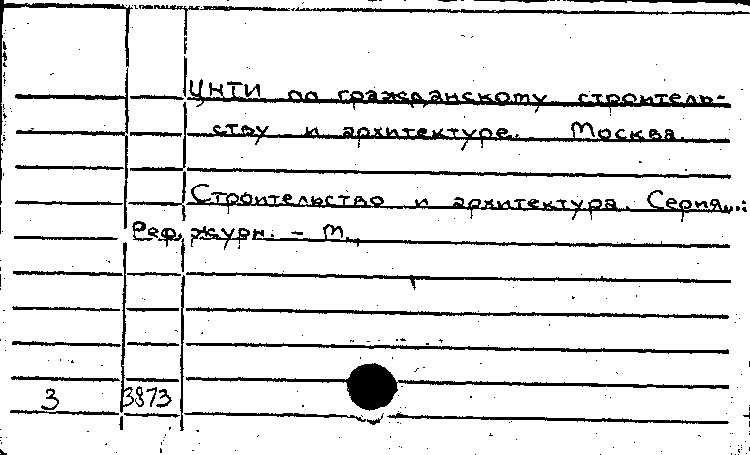 ЦНТИ по гражданскому строитель-
ству и архитектуре. Москва.
Строительство и архитектура. Серия...:
Реф. журн. - М.,
3 3873